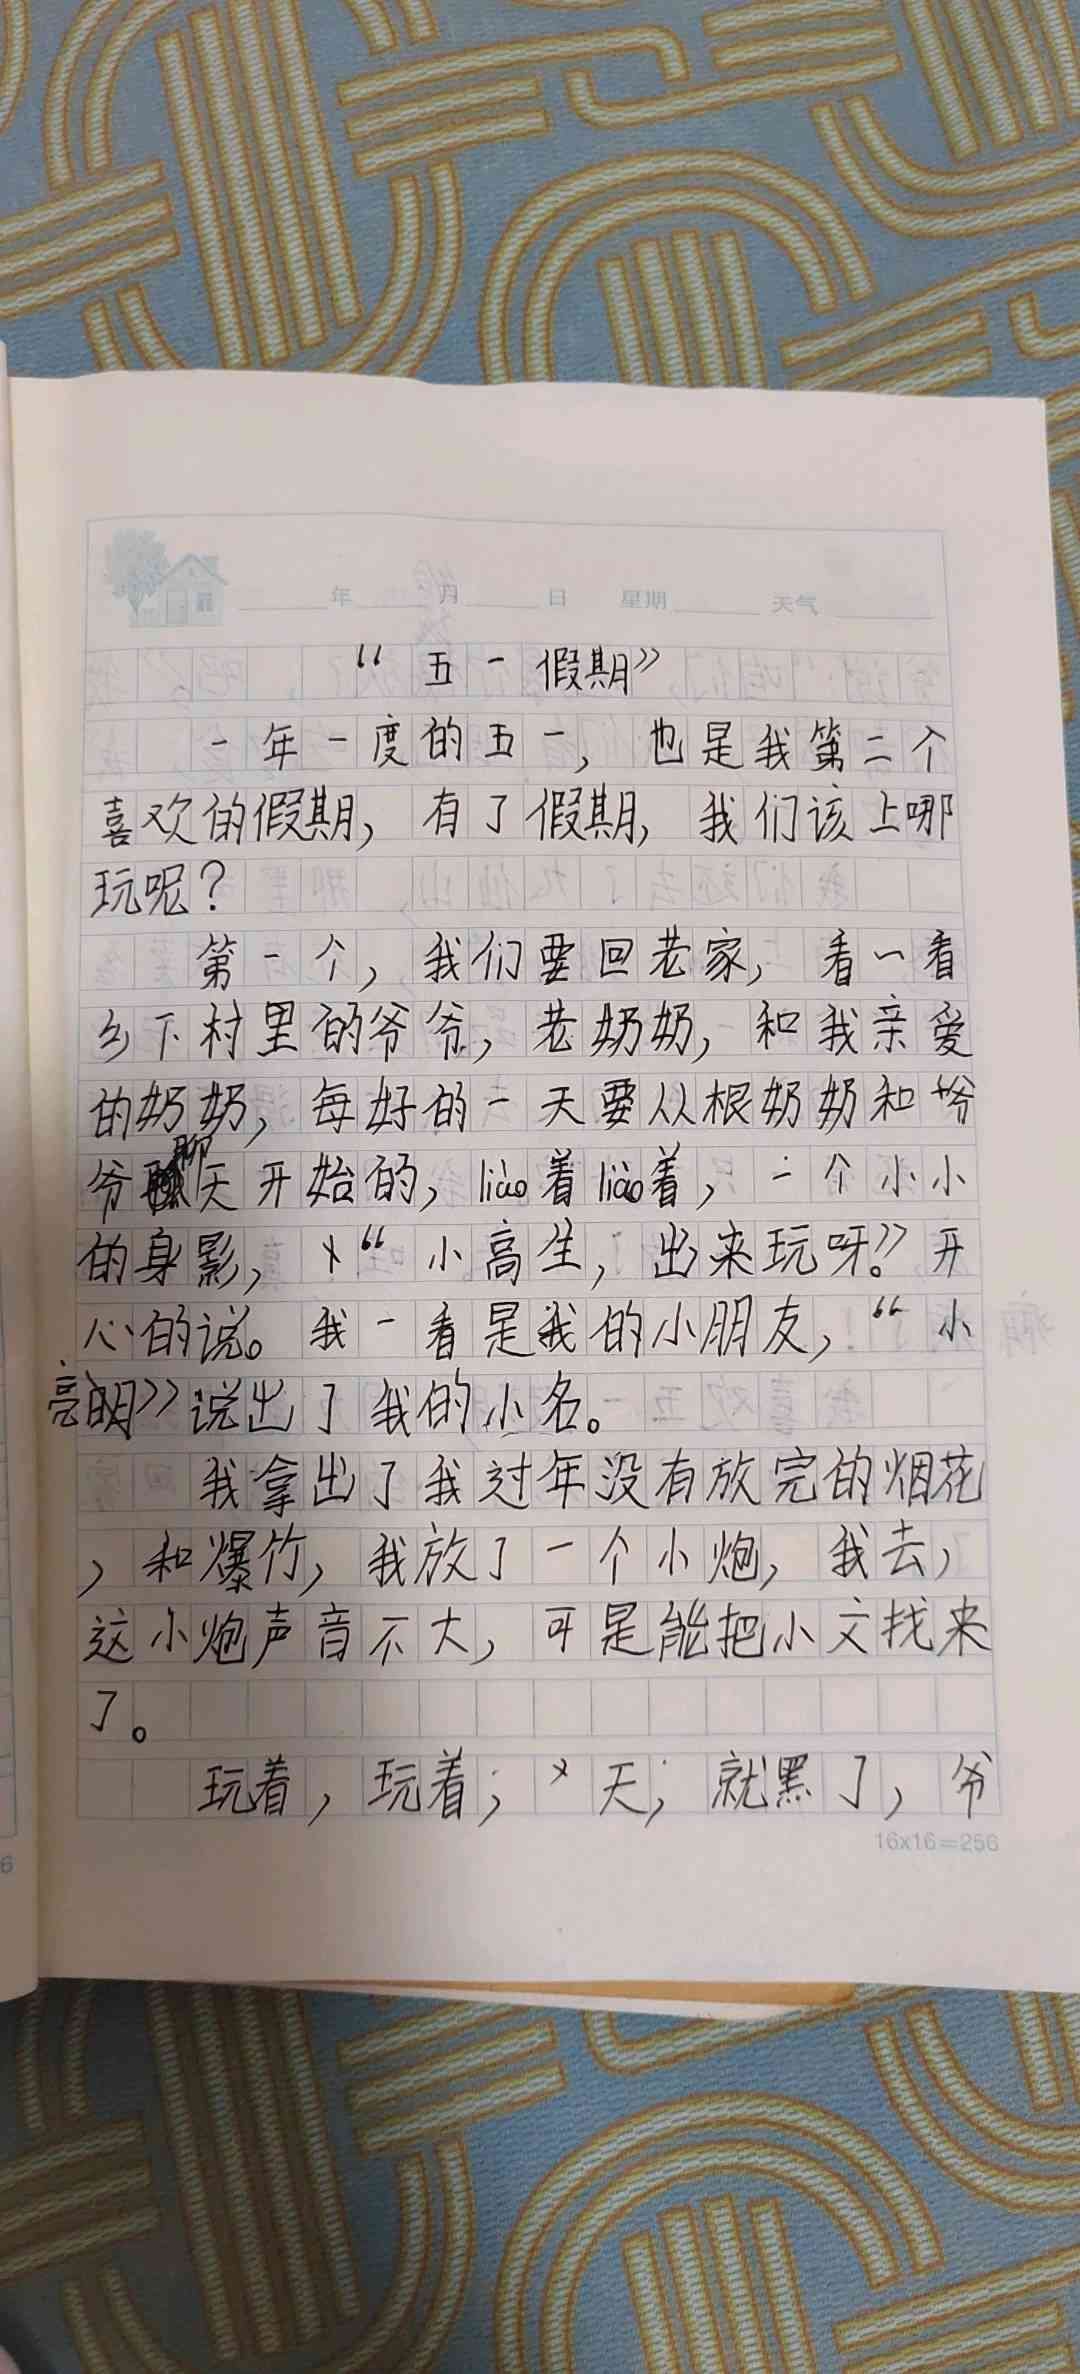 年 月 日 星期 天气
“五一假期”
一年一度的五一，也是我第二个
喜欢的假期，有了假期，我们该上哪
玩呢？
第一个，我们要回老家，看一看
乡下村里的爷爷，老奶奶，和我亲爱
的奶奶，每好的一天要从根奶奶和爷
爷聊天开始的，liáo着liáo着，一个小小
的身影，“小高生，出来玩呀。”开
心的说。我一看是我的小朋友，“小
亮明”说出了我的小名。
我拿出了我过年没有放完的烟花
，和爆竹，我放了一个小炮，我去，
这小炮声音不大，可是能把小文找来
了。
玩着，玩着；天；就黑了，爷
16x16=256